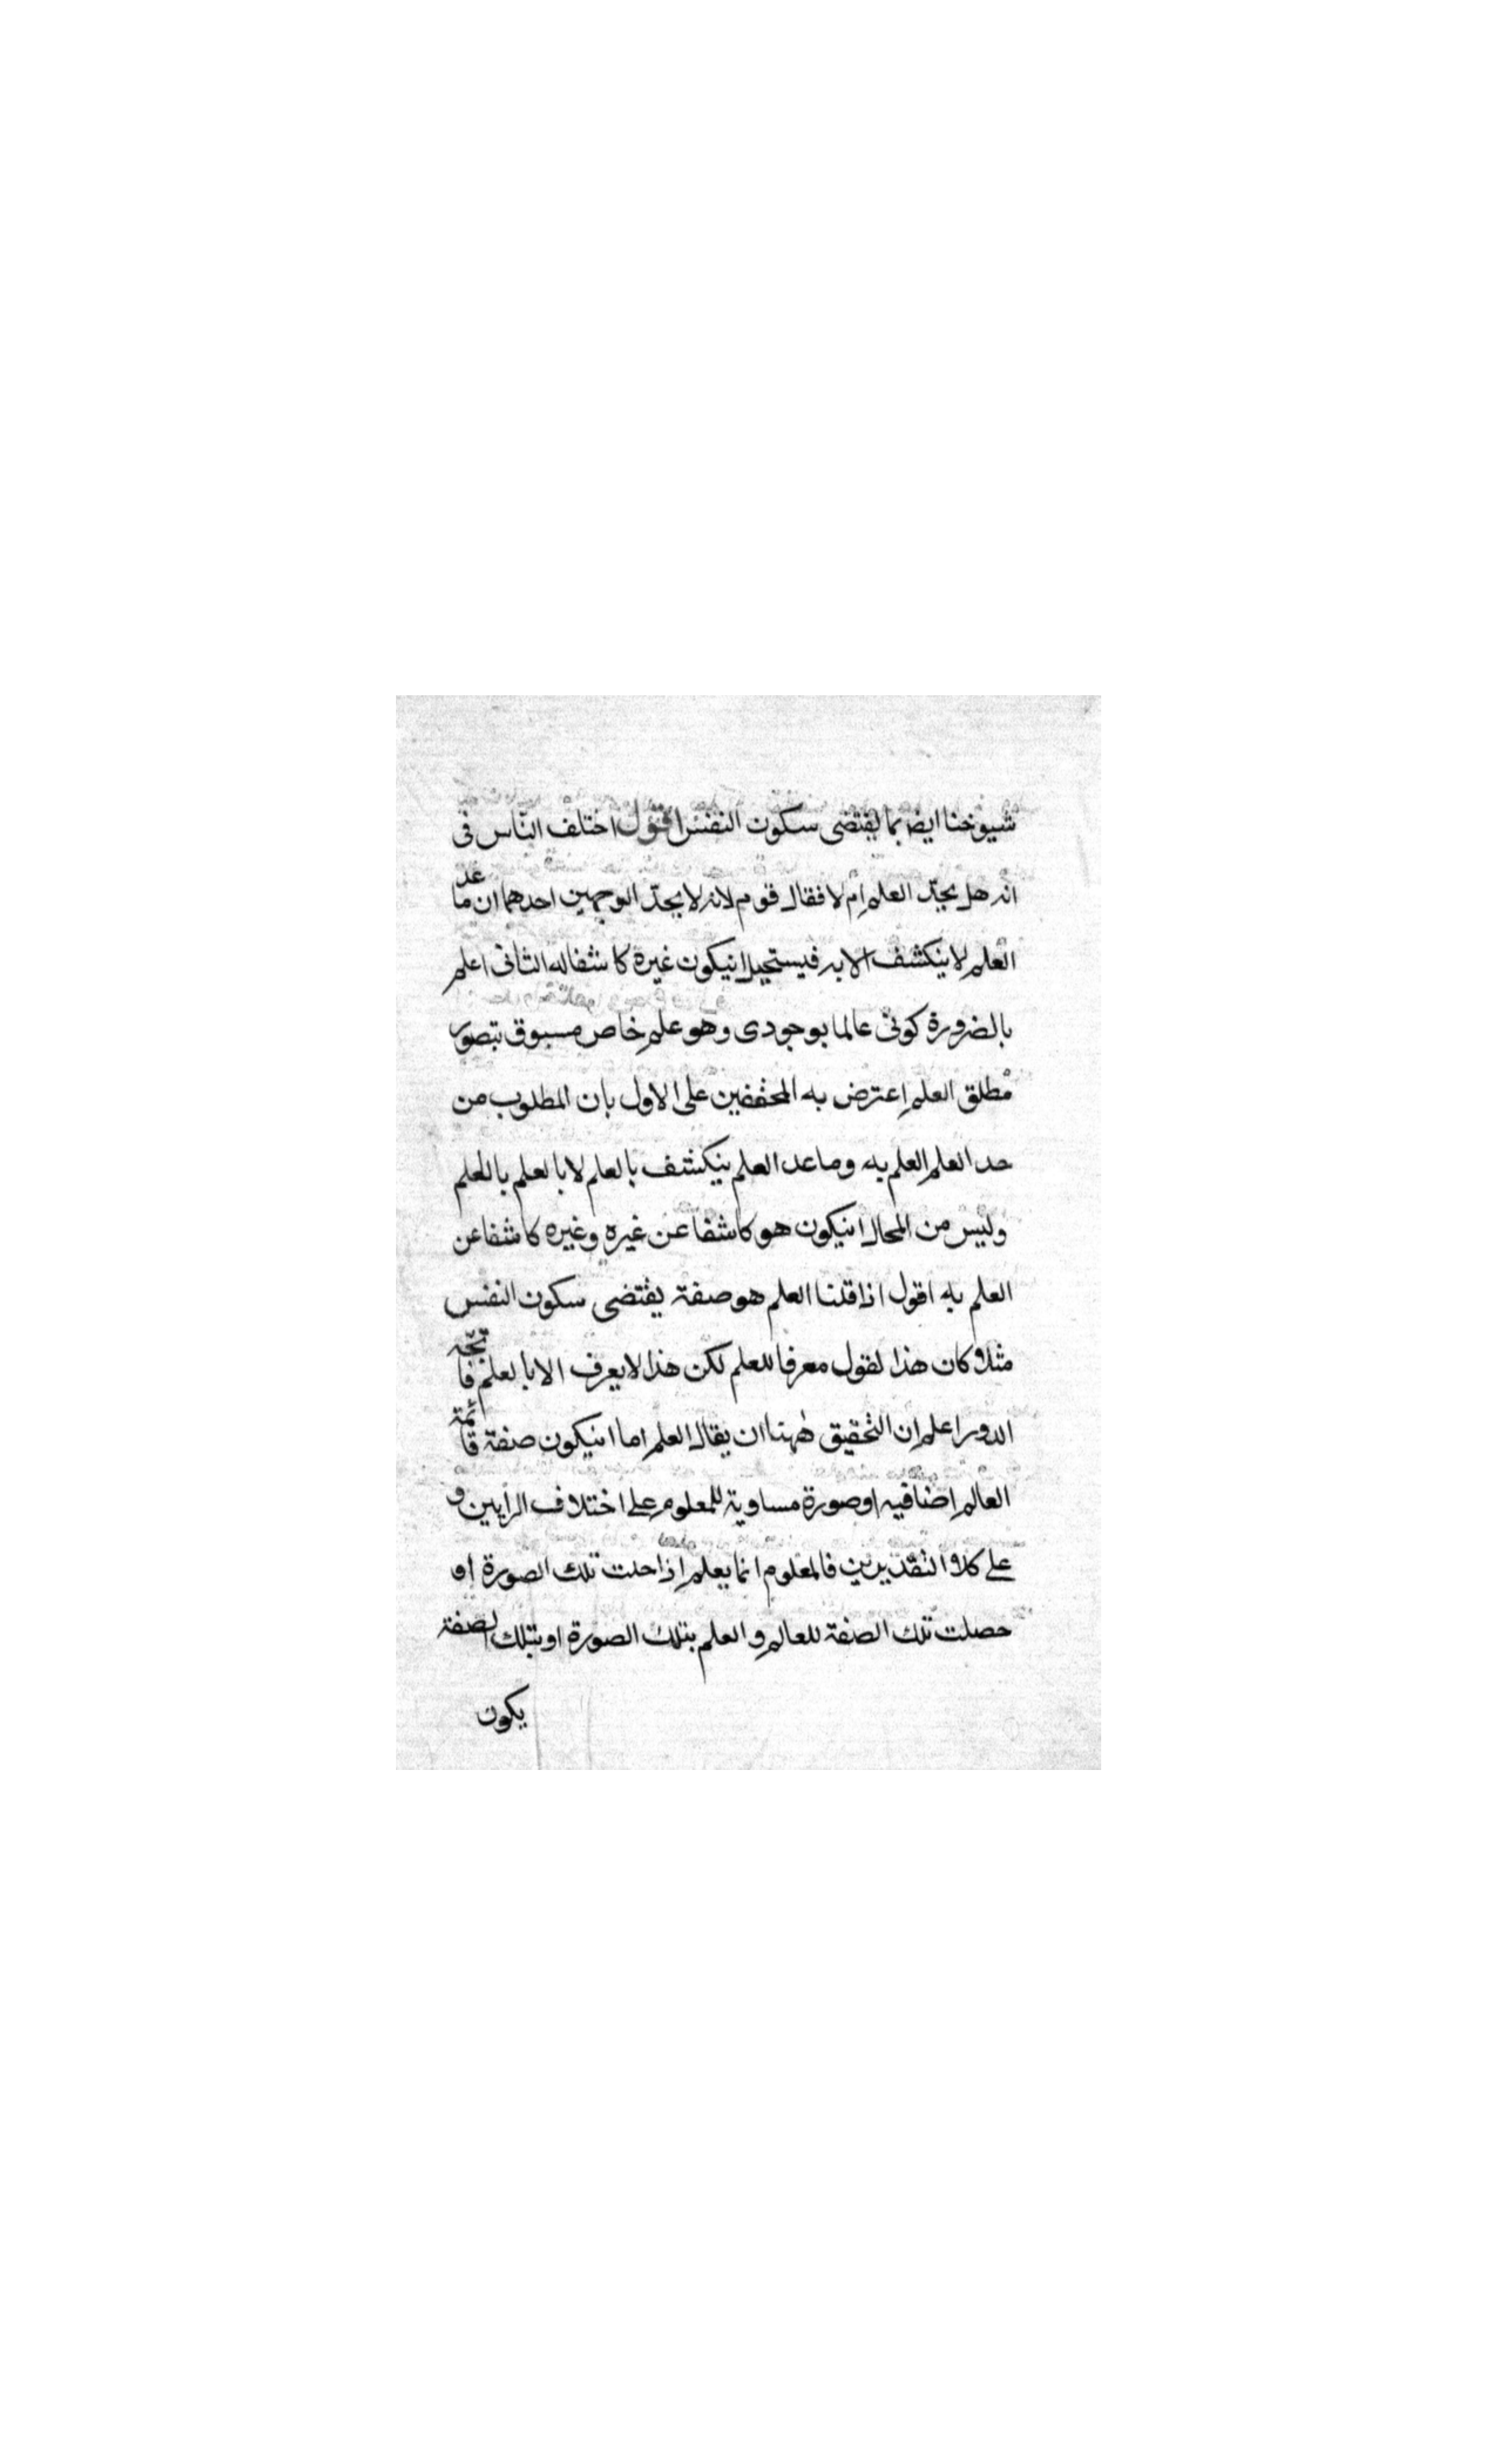 شيوخنا ايضا بما يقتضى سكون النفس اقول اختلف النّاس فى
انه هل يحدّ العلم ام لا فقال قوم لانه لا يحدّ لوجهين احدهما ان ما عد
العلم لا ينكشف الا به فيستحيل انيكون غيره كاشفا له الثانى اعلم
بالضرورة كونى عالما بوجودى وهو علم خاص مسبوق بتصور
مطلق العلم اعترض به المحققين على الاول بان المطلوب من
حد العلم العلم به وما عد العلم ينكشف بالعلم لا بالعلم بالعلم
وليس من المحال انيكون هو كاشفا عن غيره وغيره كاشفا عن
العلم به اقول اذا قلنا العلم هو صفة يقتضى سكون النفس
مثلا وكان هذا لقول معرفا للعلم لكن هذا لا يعرف الا بالعلم فا
الدور اعلم ان التحقيق ههنا ان يقال العلم اما انيكون صفة قائمة
العالم اضافيه او صورة مساوية للمعلوم على اختلاف الرايين و
على كلا التقديرين فالمعلوم انما يعلم اذا حلت تلك الصورة او
حصلت تلك الصفة للعالم و العلم بتلك الصورة او بتلك الصفة
يكون